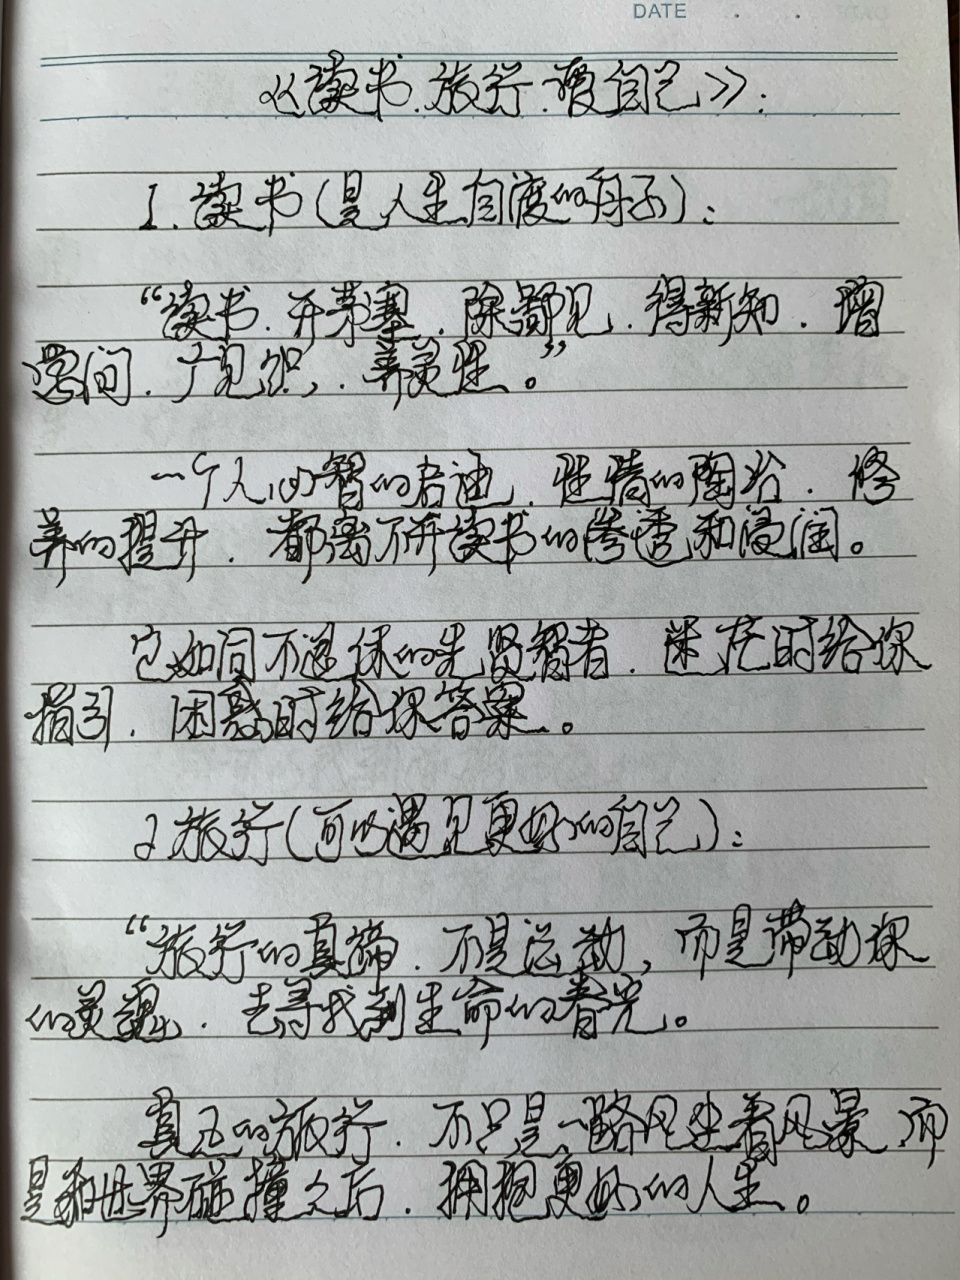 DATE
《读书.旅行.爱自己》:
1.读书(是人生自渡的母子):
“读书.开茅塞.除鄙见.得新知.增
学问.广见识.养灵性。”
一个人心智的启迪.性情的陶冶.修
养的提升.都离不开读书的渗透和浸润。
它如同不退休的先贤智者.迷茫时给你
指引.困惑时给你答案。
2.旅行(可以遇见更好的自己):
“旅行的真谛.不是运动,而是带动你
的灵魂.去寻找到生命的春光。
真正的旅行.不只是一路风尘看风景,而
是和世界碰撞之后.拥抱更好的人生。